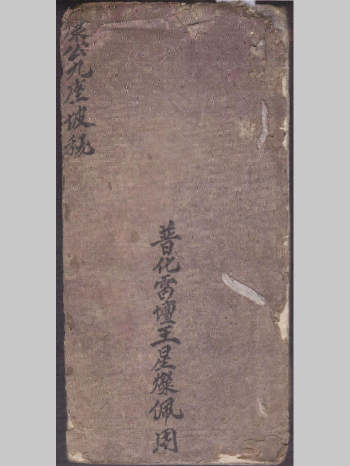 公九座坡秘
普化雷壇王星燦佩用